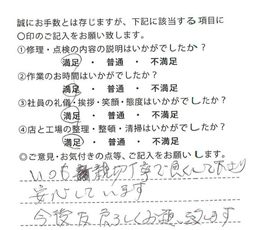 誠にお手数とは存じますが、下記に該当する項目に
〇印のご記入をお願い致します。
①修理・点検の内容の説明はいかがでしたか?
満足 ・ 普通 ・ 不満足
②作業のお時間はいかがでしたか?
満足 ・ 普通 ・ 不満足
③社員の礼儀・挨拶・笑顔・態度はいかがでしたか?
満足 ・ 普通 ・ 不満足
④店と工場の整理・整頓・清掃はいかがでしたか?
満足 ・ 普通 ・ 不満足
◎ご意見・お気付きの点等、ご記入をお願いします。
いつも親切丁寧で良くして下さり
安心しています
今後共よろしくお願い致します